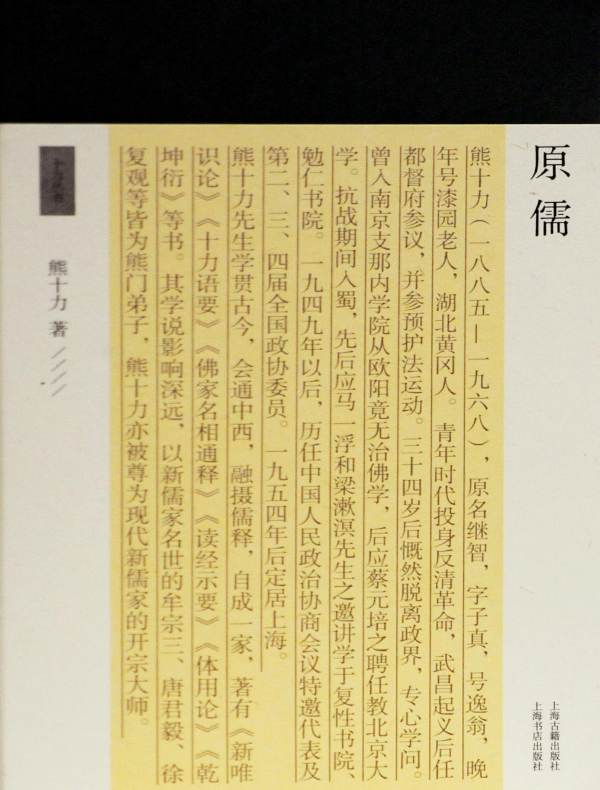 原儒
上海古籍出版社
上海书店出版社
熊十力（一八八五—一九六八），原名继智，字子真，号逸翁，晚
年号漆园老人，湖北黄冈人。青年时代投身反清革命，武昌起义后任
都督府参议，并参预护法运动。三十四岁后慨然脱离政界，专心学问。
曾入南京支那内学院从欧阳竟无治佛学，后应蔡元培之聘任教北京大
学。抗战期间入蜀，先后应马一浮和梁漱溟先生之邀讲学于复性书院、
勉仁书院。一九四九年以后，历任中国人民政治协商会议特邀代表及
第二、三、四届全国政协委员。一九五四年后定居上海。
熊十力先生学贯古今，会通中西，融摄儒释，自成一家，著有《新唯
识论》《十力语要》《佛家名相通释》《读经示要》《体用论》《乾
坤衍》等书。其学说影响深远，以新儒家名世的牟宗三、唐君毅、徐
复观等皆为熊门弟子，熊十力亦被尊为现代新儒家的开宗大师。
熊十力 著